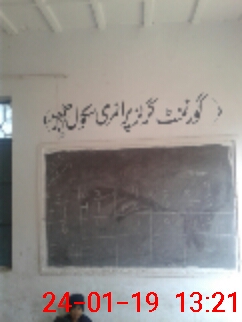 گورنمنٹ گرلز پرائمری سکول
24-01-19 13:21